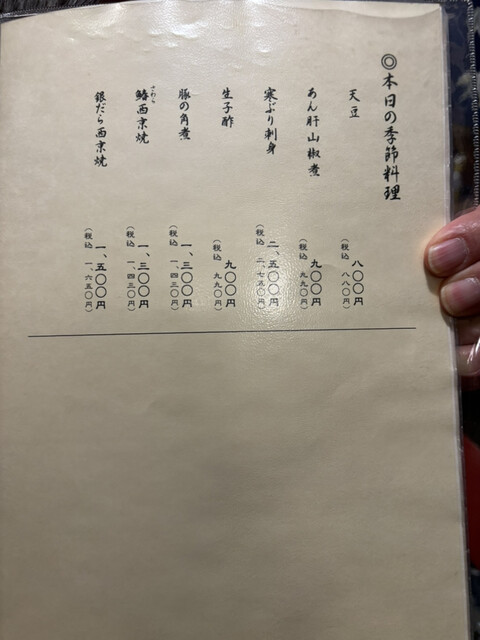 ◎本日の季節料理
天豆
八〇〇円
(税込 八八〇円)
あん肝山椒煮
九〇〇円
(税込 九九〇円)
寒ぶり刺身
二、五〇〇円
(税込 二、七五〇円)
生子酢
九〇〇円
(税込 九九〇円)
豚の角煮
一、三〇〇円
(税込 一、四三〇円)
さわら
鰆西京焼
一、三〇〇円
(税込 一、四三〇円)
銀だら西京焼
一、五〇〇円
(税込 一、六五〇円)